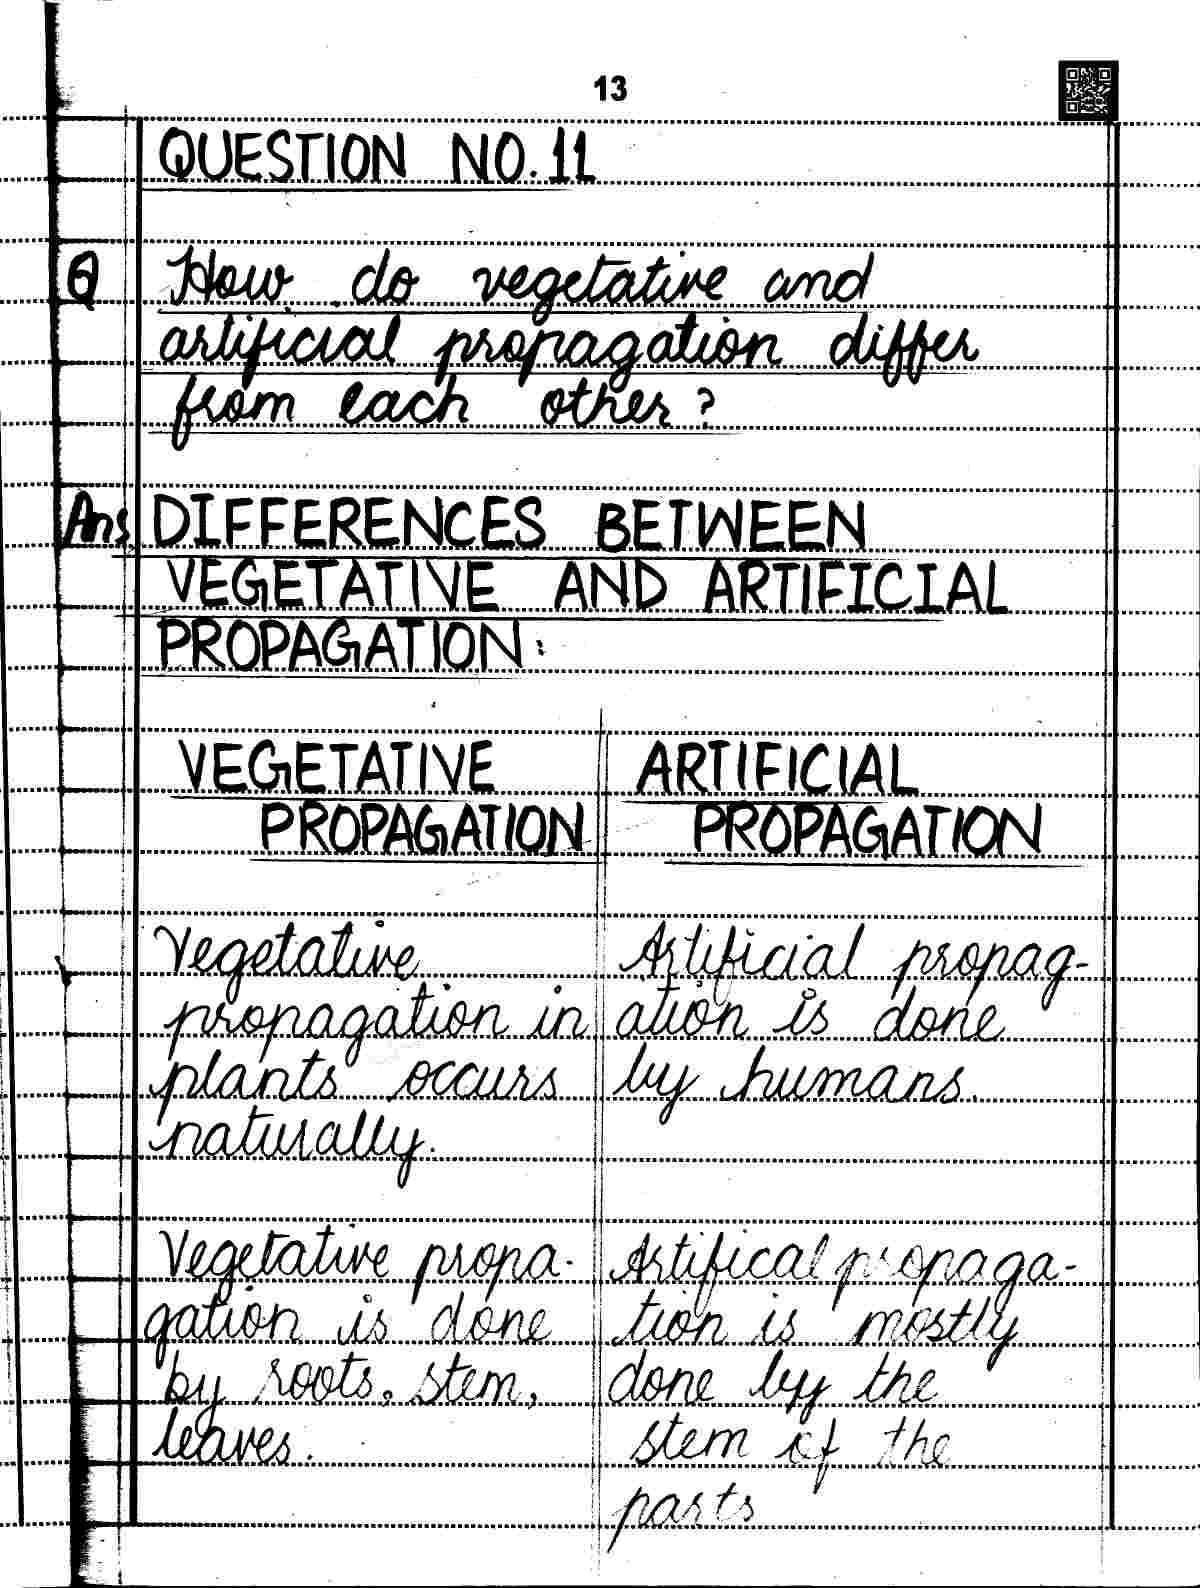 13
QUESTION NO. 11
Q How do vegetative and
artificial propagation differ
from each other?
Ans. DIFFERENCES BETWEEN
VEGETATIVE AND ARTIFICIAL
PROPAGATION:
VEGETATIVE
PROPAGATION
Vegetative
propagation in
plants occurs
naturally.
Vegetative propa-
gation is done
by roots, stem,
leaves.
ARTIFICIAL
PROPAGATION
Artificial propag-
ation is done
by humans.
Artifical propaga-
tion is mostly
done by the
stem of the
parts